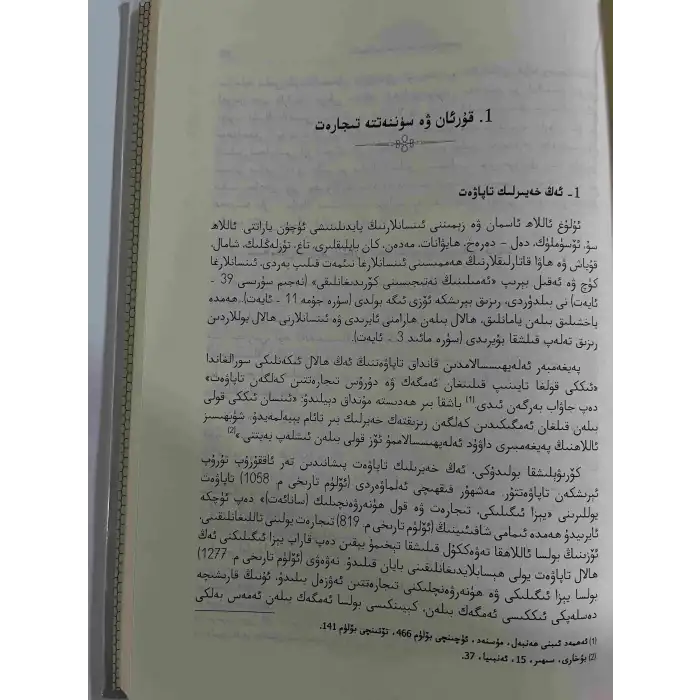 1. قۇرئان ۋە سۈننەتتە تىجارەت
1- ئەڭ خەيىرلىك تاپاۋەت
ئۇلۇغ ئاللاھ ئاسمان ۋە زېمىننى ئىنسانلارنىڭ پايدىلىنىشى ئۈچۈن ياراتتى ئاللاھ
سۇ، ئۆسۈملۈك، دەل - دەرەخ، ھايۋانات، مەدەن، كان بايلىقلىرى، تاغ، تۈزلەڭلىك، شامال،
قۇياش ۋە ھاۋا قاتارلىقلارنىڭ ھەممىسىنى ئىنسانلارغا نېمەت قىلىپ بەردى. ئىنسانلارغا
كۈچ ۋە ئەقىل بېرىپ «ئەمىلىنىڭ نەتىجىسىنى كۆرىدىغانلىقى» (نەجىم سۈرىسى 39 -
ئايەت) نى بىلدۈردى. رىزىق بېرىشكە ئۆزى ئىگە بولدى (سۈرە جۈمە 11 - ئايەت). ھەمدە
ياخشىلىق بىلەن يامانلىق، ھالال بىلەن ھارامنى ئايرىدى ۋە ئىنسانلارنى ھالال يوللاردىن
رىزىق تەلەپ قىلىشقا بۇيرىدى (سۈرە مائىد 3 - ئايەت).
پەيغەمبەر ئەلەيھىسسالامدىن قانداق تاپاۋەتنىڭ ئەڭ ھالال ئىكەنلىكى سورالغاندا
«ئىككى قولغا تايىنىپ قىلىنغان ئەمگەك ۋە دۇرۇس تىجارەتتىن كەلگەن تاپاۋەت»
دەپ جاۋاب بەرگەن ئىدى.(1) باشقا بىر ھەدىستە مۇنداق دېيىلدۇ: «ئىنسان ئىككى قولى
بىلەن قىلغان ئەمگىكىدىن كەلگەن رىزىقتەك خەيرلىك بىر تائام يېيەلمەيدۇ. شۈبھىسىز
ئاللاھنىڭ پەيغەمبىرى داۋۇد ئەلەيھىسسالاممۇ ئۆز قولى بىلەن ئىشلەپ يەيتتى.»(2)
كۆرۈۋېلىشقا بولىدۇكى، ئەڭ خەيرىلىك تاپاۋەت پىشانىدىن تەر ئاققۇزۇپ تۇرۇپ
ئېرىشكەن تاپاۋەتتۇر. مەشھۇر فىقھىچى ئەلماۋەردى (ئۆلۈم تارىخى م. 1058) تاپاۋەت
يوللىرىنى «يېزا ئىگىلىكى، تىجارەت ۋە قول ھۈنەرۋەنچىلىك (سانائەت)» دەپ ئۈچكە
ئايرىيدۇ ھەمدە ئىمامى شافىئىينىڭ (ئۆلۈم تارىخى م. 819) تىجارەت يولىنى تاللىغانلىقىنى،
ئۆزىنىڭ بولسا ئاللاھقا تەۋەككۈل قىلىشقا تېخىمۇ يېقىن دەپ قاراپ يېزا ئىگىلىكىنى ئەڭ
ھالال تاپاۋەت يولى ھېسابلايدىغانلىقىنى بايان قىلىدۇ. نەۋەۋى (ئۆلۈم تارىخى م. 1277)
بولسا يېزا ئىگىلىكى ۋە ھۈنەرۋەنچىلىكنى تىجارەتتىن ئەۋزەل بىلىدۇ. ئۇنىڭ قارىشىچە
دەسلەپكى ئىككىسى ئەمگەك بىلەن، كېيىنكىسى بولسا ئەمگەك بىلەن ئەمەس بەلكى
(1) ئەھمەد ئىبنى ھەنبەل، مۇسنەد، ئۈچىنچى بۆلۈم 466، تۆتىنچى بۆلۈم 141.
(2) بۇخارى، سېھىر، 15، ئەنبىيا، 37.